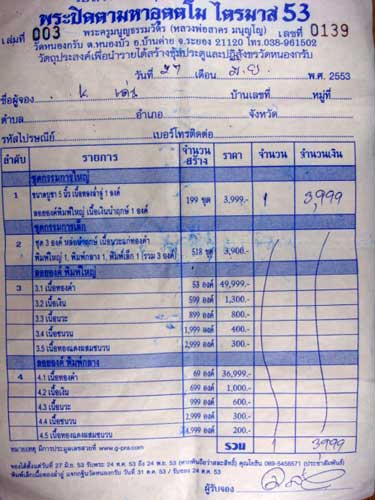 พระปิดตามหาอุตตโม ไตรมาส 53
เล่มที่ 003 พระครูมนูญธรรมวัตร (หลวงพ่อสาคร มนุญโญ) เลขที่ 0139
วัดหนองกรับ ต.หนองบัว อ.บ้านค่าย จ.ระยอง 21120 โทร.038-961502
วัตถุประสงค์เพื่อนำรายได้สร้างซุ้มประตูและปฏิสังขรวัดหนองกรับ
วันที่ 27 เดือน มิ.ย. พ.ศ. 2553
ชื่อผู้จอง บ้านเลขที่ หมู่ที่
ตำบล อำเภอ จังหวัด
รหัสไปรษณีย์ เบอร์โทรติดต่อ
ลำดับ รายการ จำนวนสร้าง ราคา จำนวน จำนวนเงิน
ชุดกรรมการใหญ่
1 ขนาดบูชา 5 นิ้ว เนื้อทองลำอู่ 1 องค์ 199 ชุด 3,999.- 1 3,999
ลอยองค์พิมพ์ใหญ่ เนื้อเงินนำฤกษ์ 1 องค์
ชุดกรรมการเล็ก
2 ชุด 3 องค์ หล่อนำฤกษ์ เนื้อนวะแก่ทองคำ 518 ชุด 3,900.-
พิมพ์ใหญ่ 1, พิมพ์กลาง 1, พิมพ์เล็ก 1 (รวม 3 องค์)
ลอยองค์ พิมพ์ใหญ่
3 3.1 เนื้อทองคำ 53 องค์ 49,999.-
3.2 เนื้อเงิน 599 องค์ 1,300.-
3.3 เนื้อนวะ 899 องค์ 800.-
3.4 เนื้อชนวน 1,999 องค์ 400.-
3.5 เนื้อทองแดงผสมชนวน 2,999 องค์ 300.-
ลอยองค์ พิมพ์กลาง
4 4.1 เนื้อทองคำ 69 องค์ 36,999.-
4.2 เนื้อเงิน 699 องค์ 1,000.-
4.3 เนื้อนวะ 999 องค์ 600.-
4.4 เนื้อชนวน 2,999 องค์ 300.-
4.5 เนื้อทองแดงผสมชนวน 4,999 องค์ 200.-
หมายเหตุ มีการประมูลเลขสวยที่ www.g-pra.com รวม 1 3999
จองได้ตั้งแต่วันที่ 27 มิ.ย. 53 รับพระ 24 ต.ค. 53 ถึง 24 พ.ย. 53
ผู้รับจอง